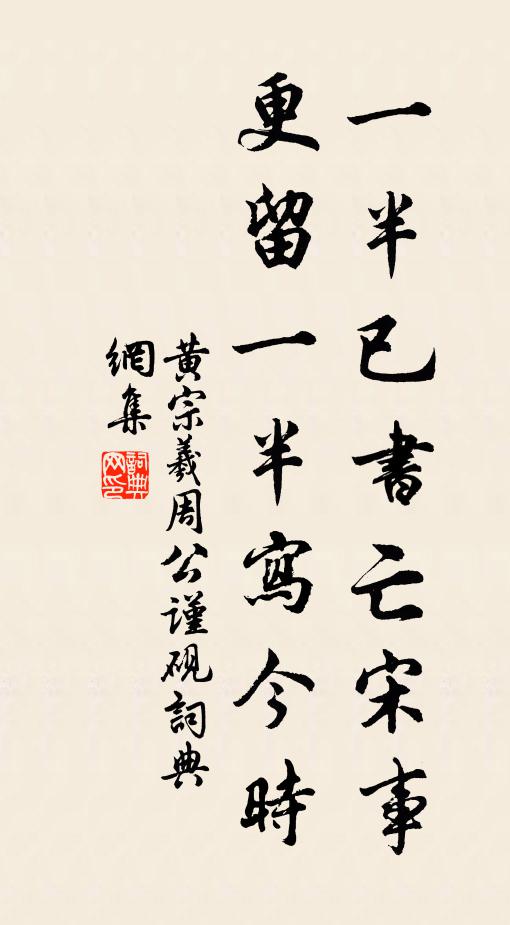 一半已書亡宋事
更留一半寫今時
黃宗羲周公謹硯詞典
網集
詞典網印